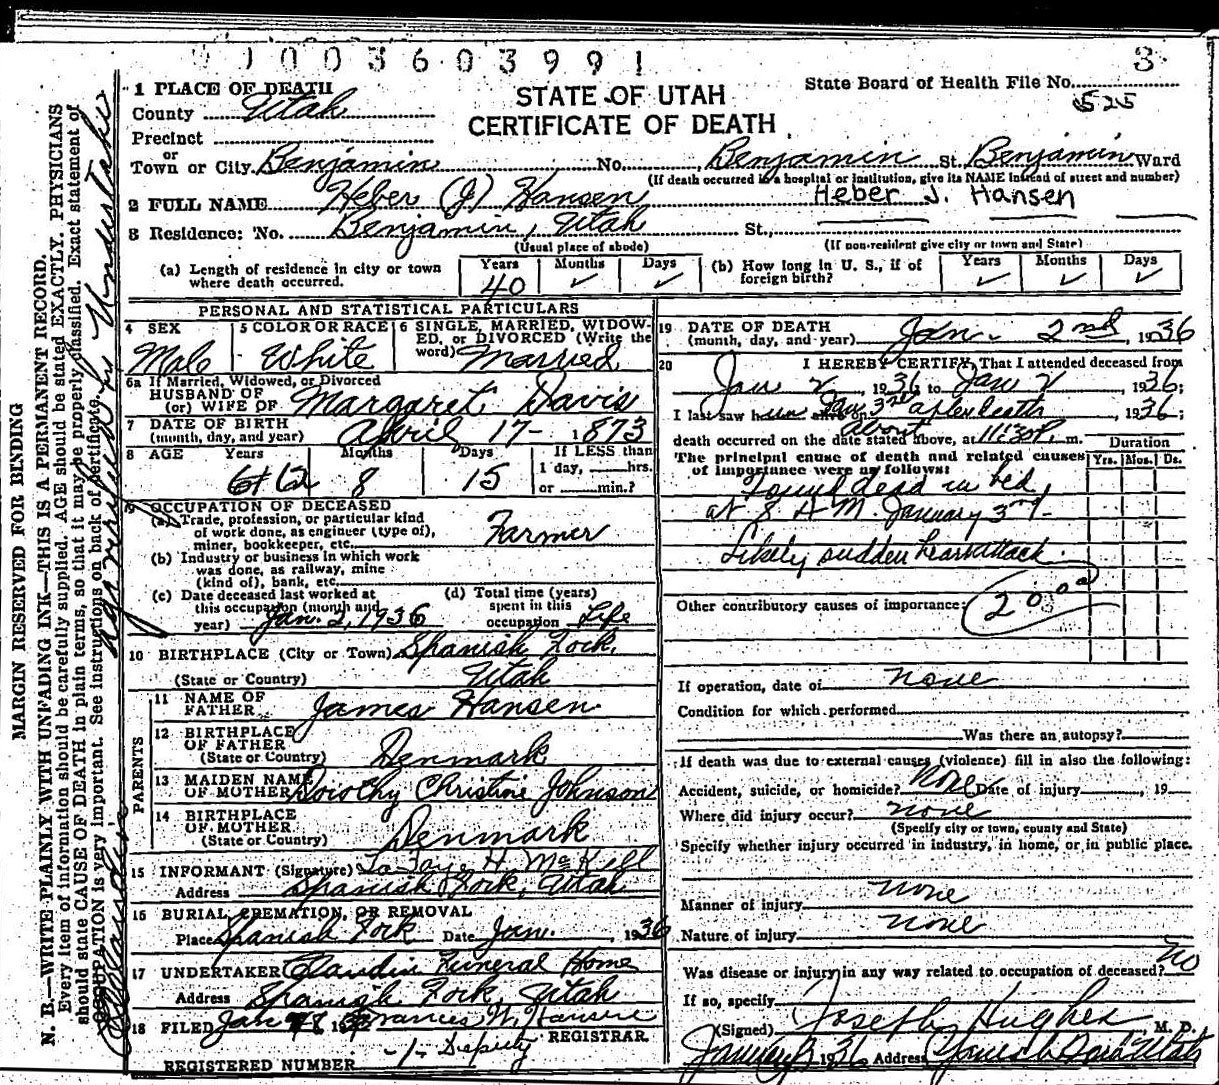 9 1 0 0 3 6 0 3 9 9 1 3
State Board of Health File No. 525
1 PLACE OF DEATH
STATE OF UTAH
CERTIFICATE OF DEATH
County Utah
Precinct
or
Town or City Benjamin No. Benjamin St. Benjamin Ward
(If death occurred in a hospital or institution, give its NAME instead of street and number)
2 FULL NAME Heber (J) Hansen Heber J. Hansen
3 Residence: No. Benjamin, Utah St.,
(Usual place of abode) (If non-resident give city or town and State)
(a) Length of residence in city or town where death occurred. Years 40 Months ✓ Days ✓
(b) How long in U. S., if of foreign birth? Years ✓ Months ✓ Days ✓
PERSONAL AND STATISTICAL PARTICULARS
4 SEX Male
5 COLOR OR RACE White
6 SINGLE, MARRIED, WIDOWED, or DIVORCED (Write the word) Married
6a If Married, Widowed, or Divorced
HUSBAND OF
(or) WIFE OF Margaret Davis
7 DATE OF BIRTH
(month, day, and year) April 17- 1873
8 AGE Years 62 Months 8 Days 15
If LESS than
1 day, hrs.
or min.?
9 OCCUPATION OF DECEASED
(a) Trade, profession, or particular kind
of work done, as engineer (type of),
miner, bookkeeper, etc. Farmer
(b) Industry or business in which work
was done, as railway, mine
(kind of), bank, etc.
(c) Date deceased last worked at
this occupation (month and
year) Jan. 2, 1936
(d) Total time (years)
spent in this
occupation Life
10 BIRTHPLACE (City or Town) Spanish Fork,
(State or Country) Utah
PARENTS
11 NAME OF
FATHER James Hansen
12 BIRTHPLACE
OF FATHER
(State or Country) Denmark
13 MAIDEN NAME
OF MOTHER Dorothy Christine Johnson
14 BIRTHPLACE
OF MOTHER
(State or Country) Denmark
15 INFORMANT (Signature) La Faye H. McKell
Address Spanish Fork, Utah
16 BURIAL, CREMATION, OR REMOVAL
Place Spanish Fork Date Jan. 1936
17 UNDERTAKER Claudin Funeral Home
Address Spanish Fork, Utah
18 FILED Jan 8 193 Frances W. Hansen
REGISTRAR
REGISTERED NUMBER -1- Deputy
19 DATE OF DEATH
(month, day, and year) Jan. 2nd, 1936
20 I HEREBY CERTIFY, That I attended deceased from
Jan 2, 1936 to Jan 2, 1936;
I last saw him alive on Jan 3rd after death, 1936;
about
death occurred on the date stated above, at 11:30P. m.
The principal cause of death and related causes
of importance were as follows:
Duration
Yrs. Mos. Ds.
Found dead in bed
at 8 A.M. January 3rd-
Likely sudden heart attack.
Other contributory causes of importance:
If operation, date of none
Condition for which performed
Was there an autopsy?
If death was due to external causes (violence) fill in also the following:
Accident, suicide, or homicide? None Date of injury , 19
Where did injury occur? none
(Specify city or town, county and State)
Specify whether injury occurred in industry, in home, or in public place.
Manner of injury none
Nature of injury none
Was disease or injury in any way related to occupation of deceased? no
If so, specify
(Signed) Joseph Hughes, M. D.
January 3 1936 Address Spanish Fork Utah
MARGIN RESERVED FOR BINDING
N. B.—WRITE PLAINLY WITH UNFADING INK—THIS IS A PERMANENT RECORD.
Every item of information should be carefully supplied. AGE should be stated EXACTLY. PHYSICIANS
should state CAUSE OF DEATH in plain terms, so that it may be properly classified. Exact statement of
OCCUPATION is very important. See instructions on back of certificate.